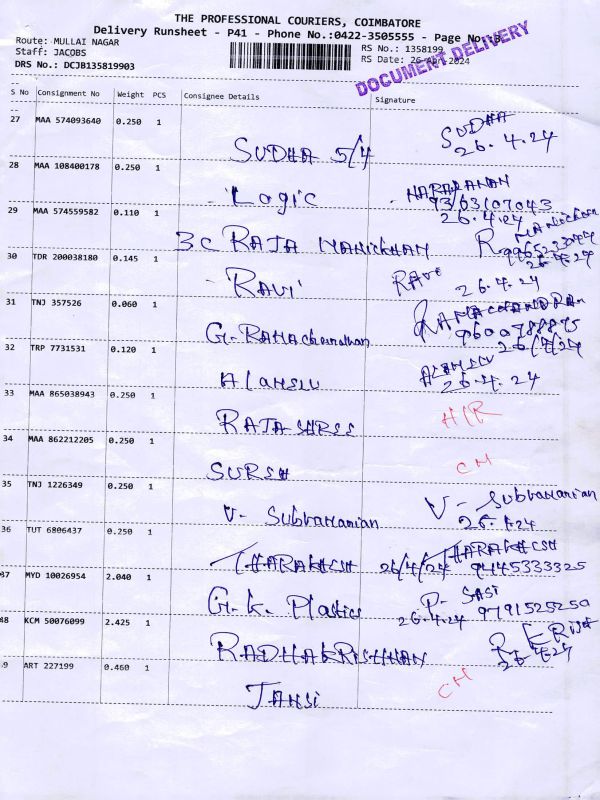 THE PROFESSIONAL COURIERS, COIMBATORE
Delivery Runsheet - P41 - Phone No.:0422-3505555 - Page No.:3
Route: MULLAI NAGAR RS No.: 1358199
Staff: JACOBS RS Date: 26-Apr-2024
DRS No.: DCJB135819903
DOCUMENT DELIVERY
S No Consignment No Weight PCS Consignee Details Signature
27 MAA 574093640 0.250 1
SUDHA 5/4 SUDHA
26.4.24
28 MAA 108400178 0.250 1
Logic
26.4.24
29 MAA 574559582 0.110 1
3C RAJA MANICKHAM
26.4.24
30 TDR 200038180 0.145 1
RAVI RAVI
26.4.24
31 TNJ 357526 0.060 1
G. RAMAchandhan RAMACHANDRAN
9600788895
26/4/24
32 TRP 7731531 0.120 1
26.4.24
33 MAA 865038943 0.250 1
RAJA
34 MAA 862212205 0.250 1
SURSH CH
35 TNJ 1226349 0.250 1
V- Subramanian V- Subramanian
26.4.24
36 TUT 6806437 0.250 1
THARAKESH 26/4/24 THARAKESH
9445333325
37 MYD 10026954 2.040 1
G.K. Plastics P- SASI
26.4.24 9791525250
38 KCM 50076099 2.425 1
RADHAKRISHNAN
26.4.24
39 ART 227199 0.460 1
JANSI CH